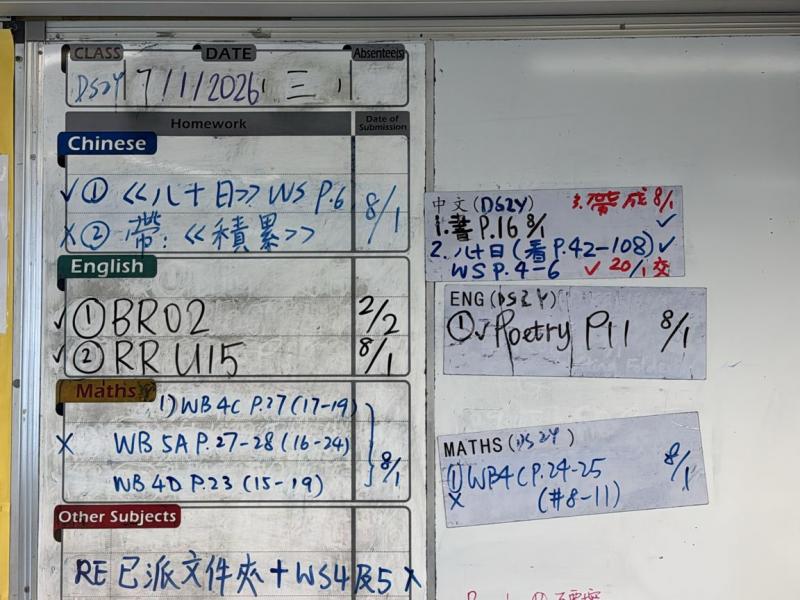 CLASS DATE Absentee(s)
DS2Y 7/1/2026 三
Homework Date of Submission
Chinese
✓ ① 《八十日》 WS P.6 8/1
X ② 帶：《積累》
English
✓ ① BR02 2/2
✓ ② RR U15 8/1
Maths
1) WB 4C P.27 (17-19)
X WB 5A P.27-28 (16-24) 8/1
WB 4D P.23 (15-19)
Other Subjects
RE 已派文件夾 + WS4及5 X
中文 (DS2Y) 3. 帶成 8/1 ✓
1. 書 P.16 8/1
2. 八十日 (看 P.42-108) ✓
WS P.4-6 ✓ 20/1 交
ENG (DS2Y)
① ✓ Poetry P11 8/1
MATHS (DS2Y)
① WB4C P.24-25 8/1
X (#8-11)